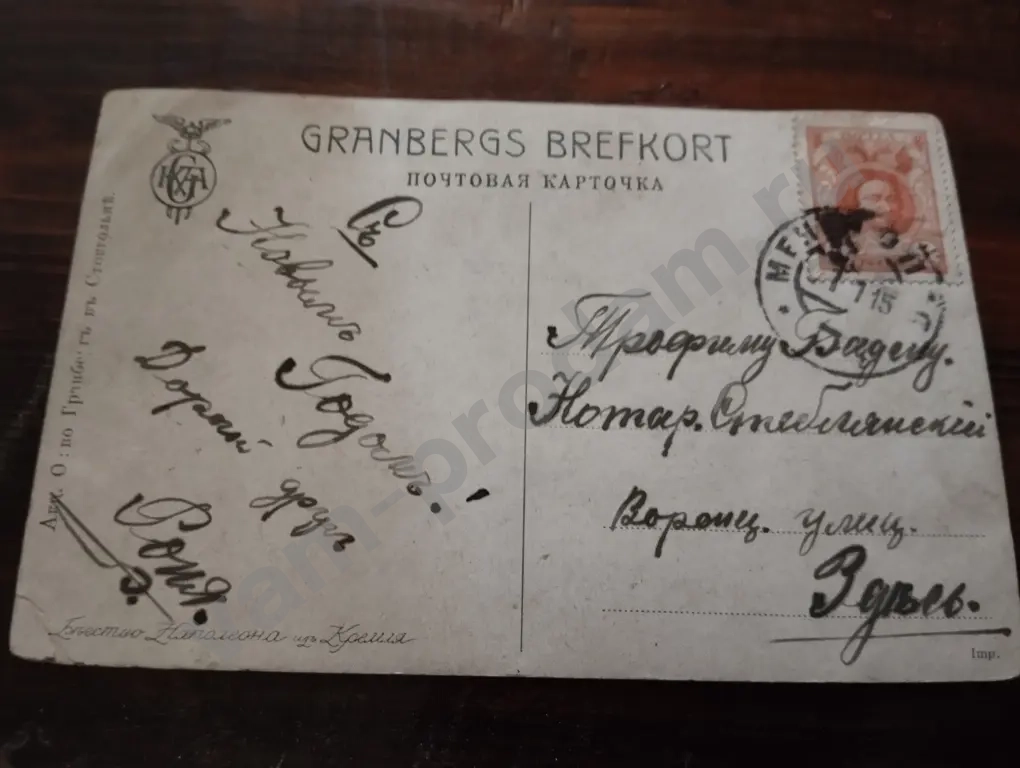 GRANBERGS BREFKORT
ПОЧТОВАЯ КАРТОЧКА
Съ
Новымъ
Годомъ!
Дорогой
другъ
Соня.
Акц. О-во Гранбергъ въ Стокгольмѣ.
Бѣгство Наполеона изъ Кремля
15
Трофиму
Нотар. Стеблянскій
Воронц. улиц.
Здѣсь.
Imp.